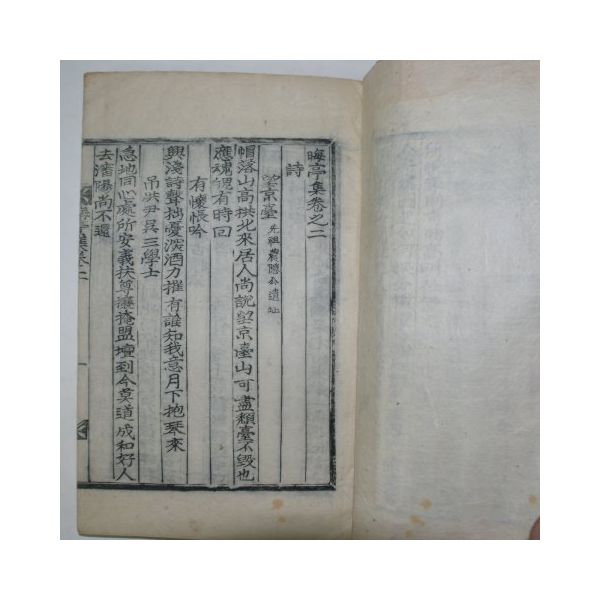 晦亭集卷之二
詩
望京臺 先祖農隱公遺址
帽落山高拱北來居人尚說望京臺山可盡頹臺不毁也
應魂魄有時回
有懷悵吟
興淺詩聲拙憂深酒力摧有誰知我意月下抱琹來
吊洪尹吳三學士
急地同心處所安義扶尊攘掩盟壇到今莫道成和好人
去瀋陽尚不還